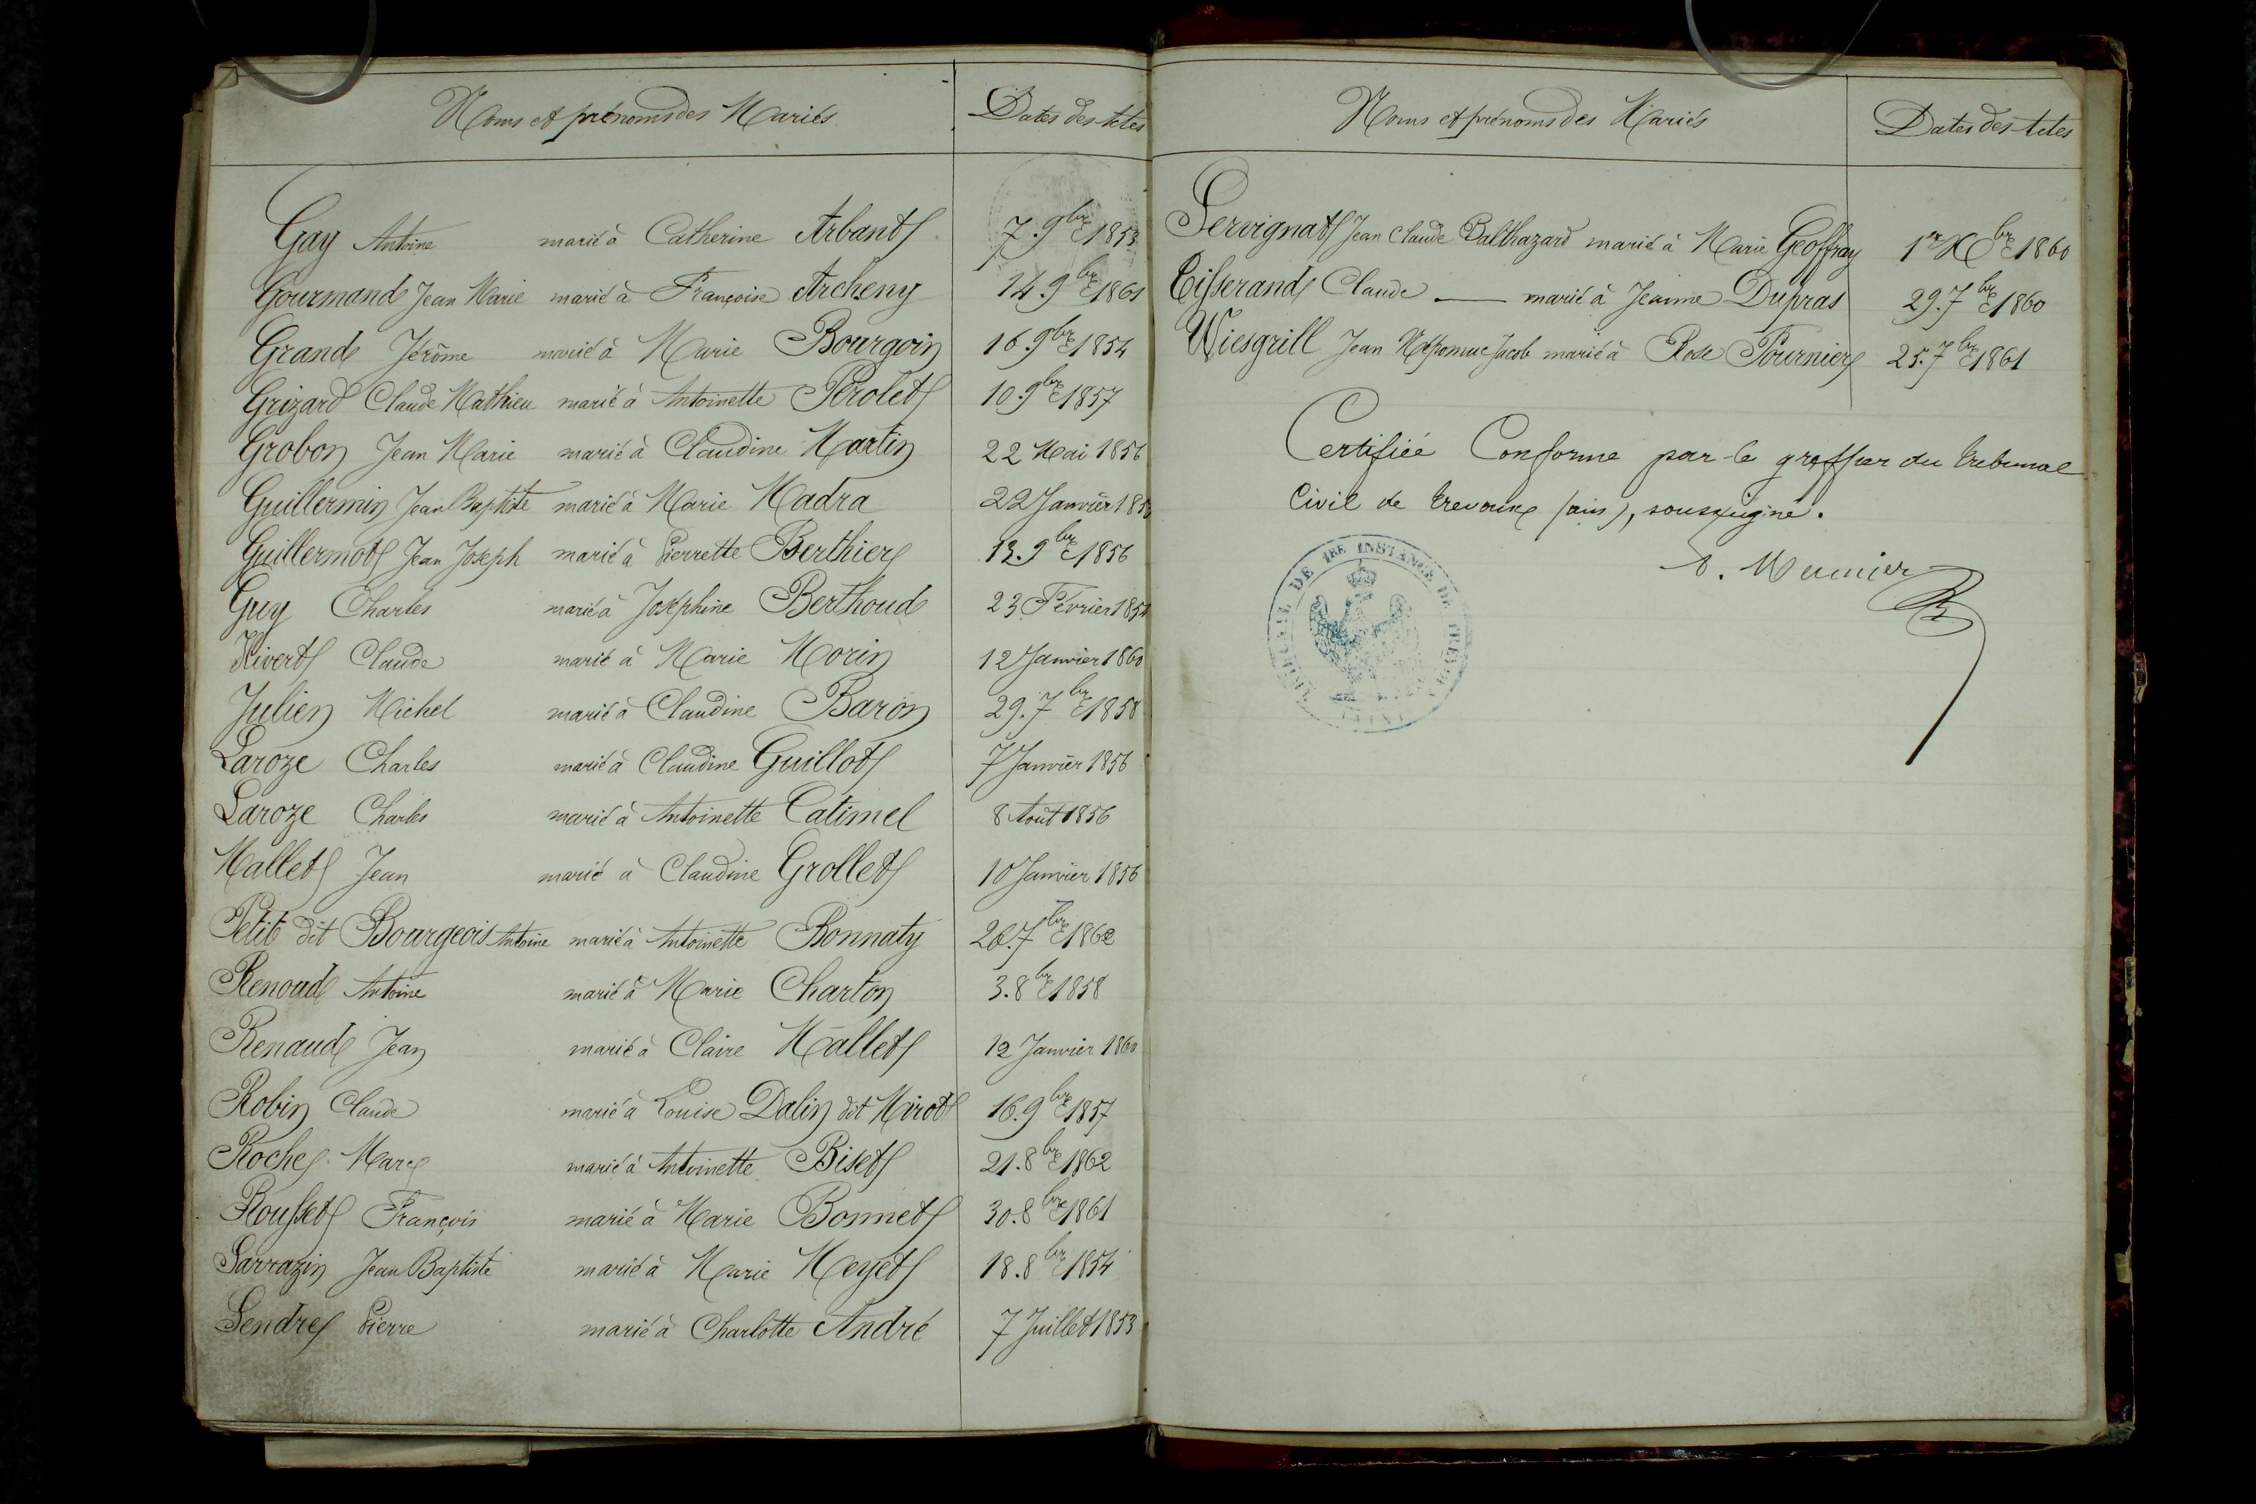 Noms et prénoms des Mariés Dates des Actes
Gay Antoine marié à Catherine Arband 7. 9bre 1853
Gourmand Jean Marie marié à Françoise Archeny 14. 9bre 1861
Grand Jérôme marié à Marie Bourgoin 16. 9bre 1854
Grizard Claude Mathieu marié à Antoinette Perolet 10. 9bre 1857
Grobon Jean Marie marié à Claudine Martin 22 Mai 1856
Guillermin Jean Baptiste marié à Marie Madra 22 Janvier
Guillermot Jean Joseph marié à Pierrette Berthier 13. 9bre 1856
Guy Charles marié à Joséphine Berthoud 23 Février 1854
Hivert Claude marié à Marie Morin 12 Janvier 1860
Julien Michel marié à Claudine Baron 29. 7bre 1858
Laroze Charles marié à Claudine Guillot 7 Janvier 1856
Laroze Charles marié à Antoinette Catimel 8 Août 1856
Mallet Jean marié à Claudine Grollet 10 Janvier 1856
Petit dit Bourgeois Antoine marié à Antoinette Bonnaty 26. 7bre 1862
Renoud Antoine marié à Marie Charton 3. 8bre 1858
Renaud Jean marié à Claire Mallet 12 Janvier 1860
Robin Claude marié à Louise Dalin dit Mirot 16. 9bre 1857
Roche Marc marié à Antoinette Biset 21. 8bre 1862
Rousset François marié à Marie Bonnet 30. 8bre 1861
Sarrazin Jean Baptiste marié à Marie Meyet 18. 8bre 1854
Sendre Pierre marié à Charlotte André 7 Juillet 1853
Noms et prénoms des Mariés Dates des Actes
Servignat Jean Claude Balthazard marié à Marie Geoffray 1er Xbre 1860
Tisserand Claude — marié à Jeanne Dupras 29. 7bre 1860
Wiesgrill Jean Népomuc Jacob marié à Rose Fournier 25. 7bre 1861
Certifiée Conforme par le greffier du tribunal
Civil de trevoux (ain), soussigné.
Meunier
TRIBUNAL DE 1RE INSTANCE DE TRÉVOUX
(AIN)